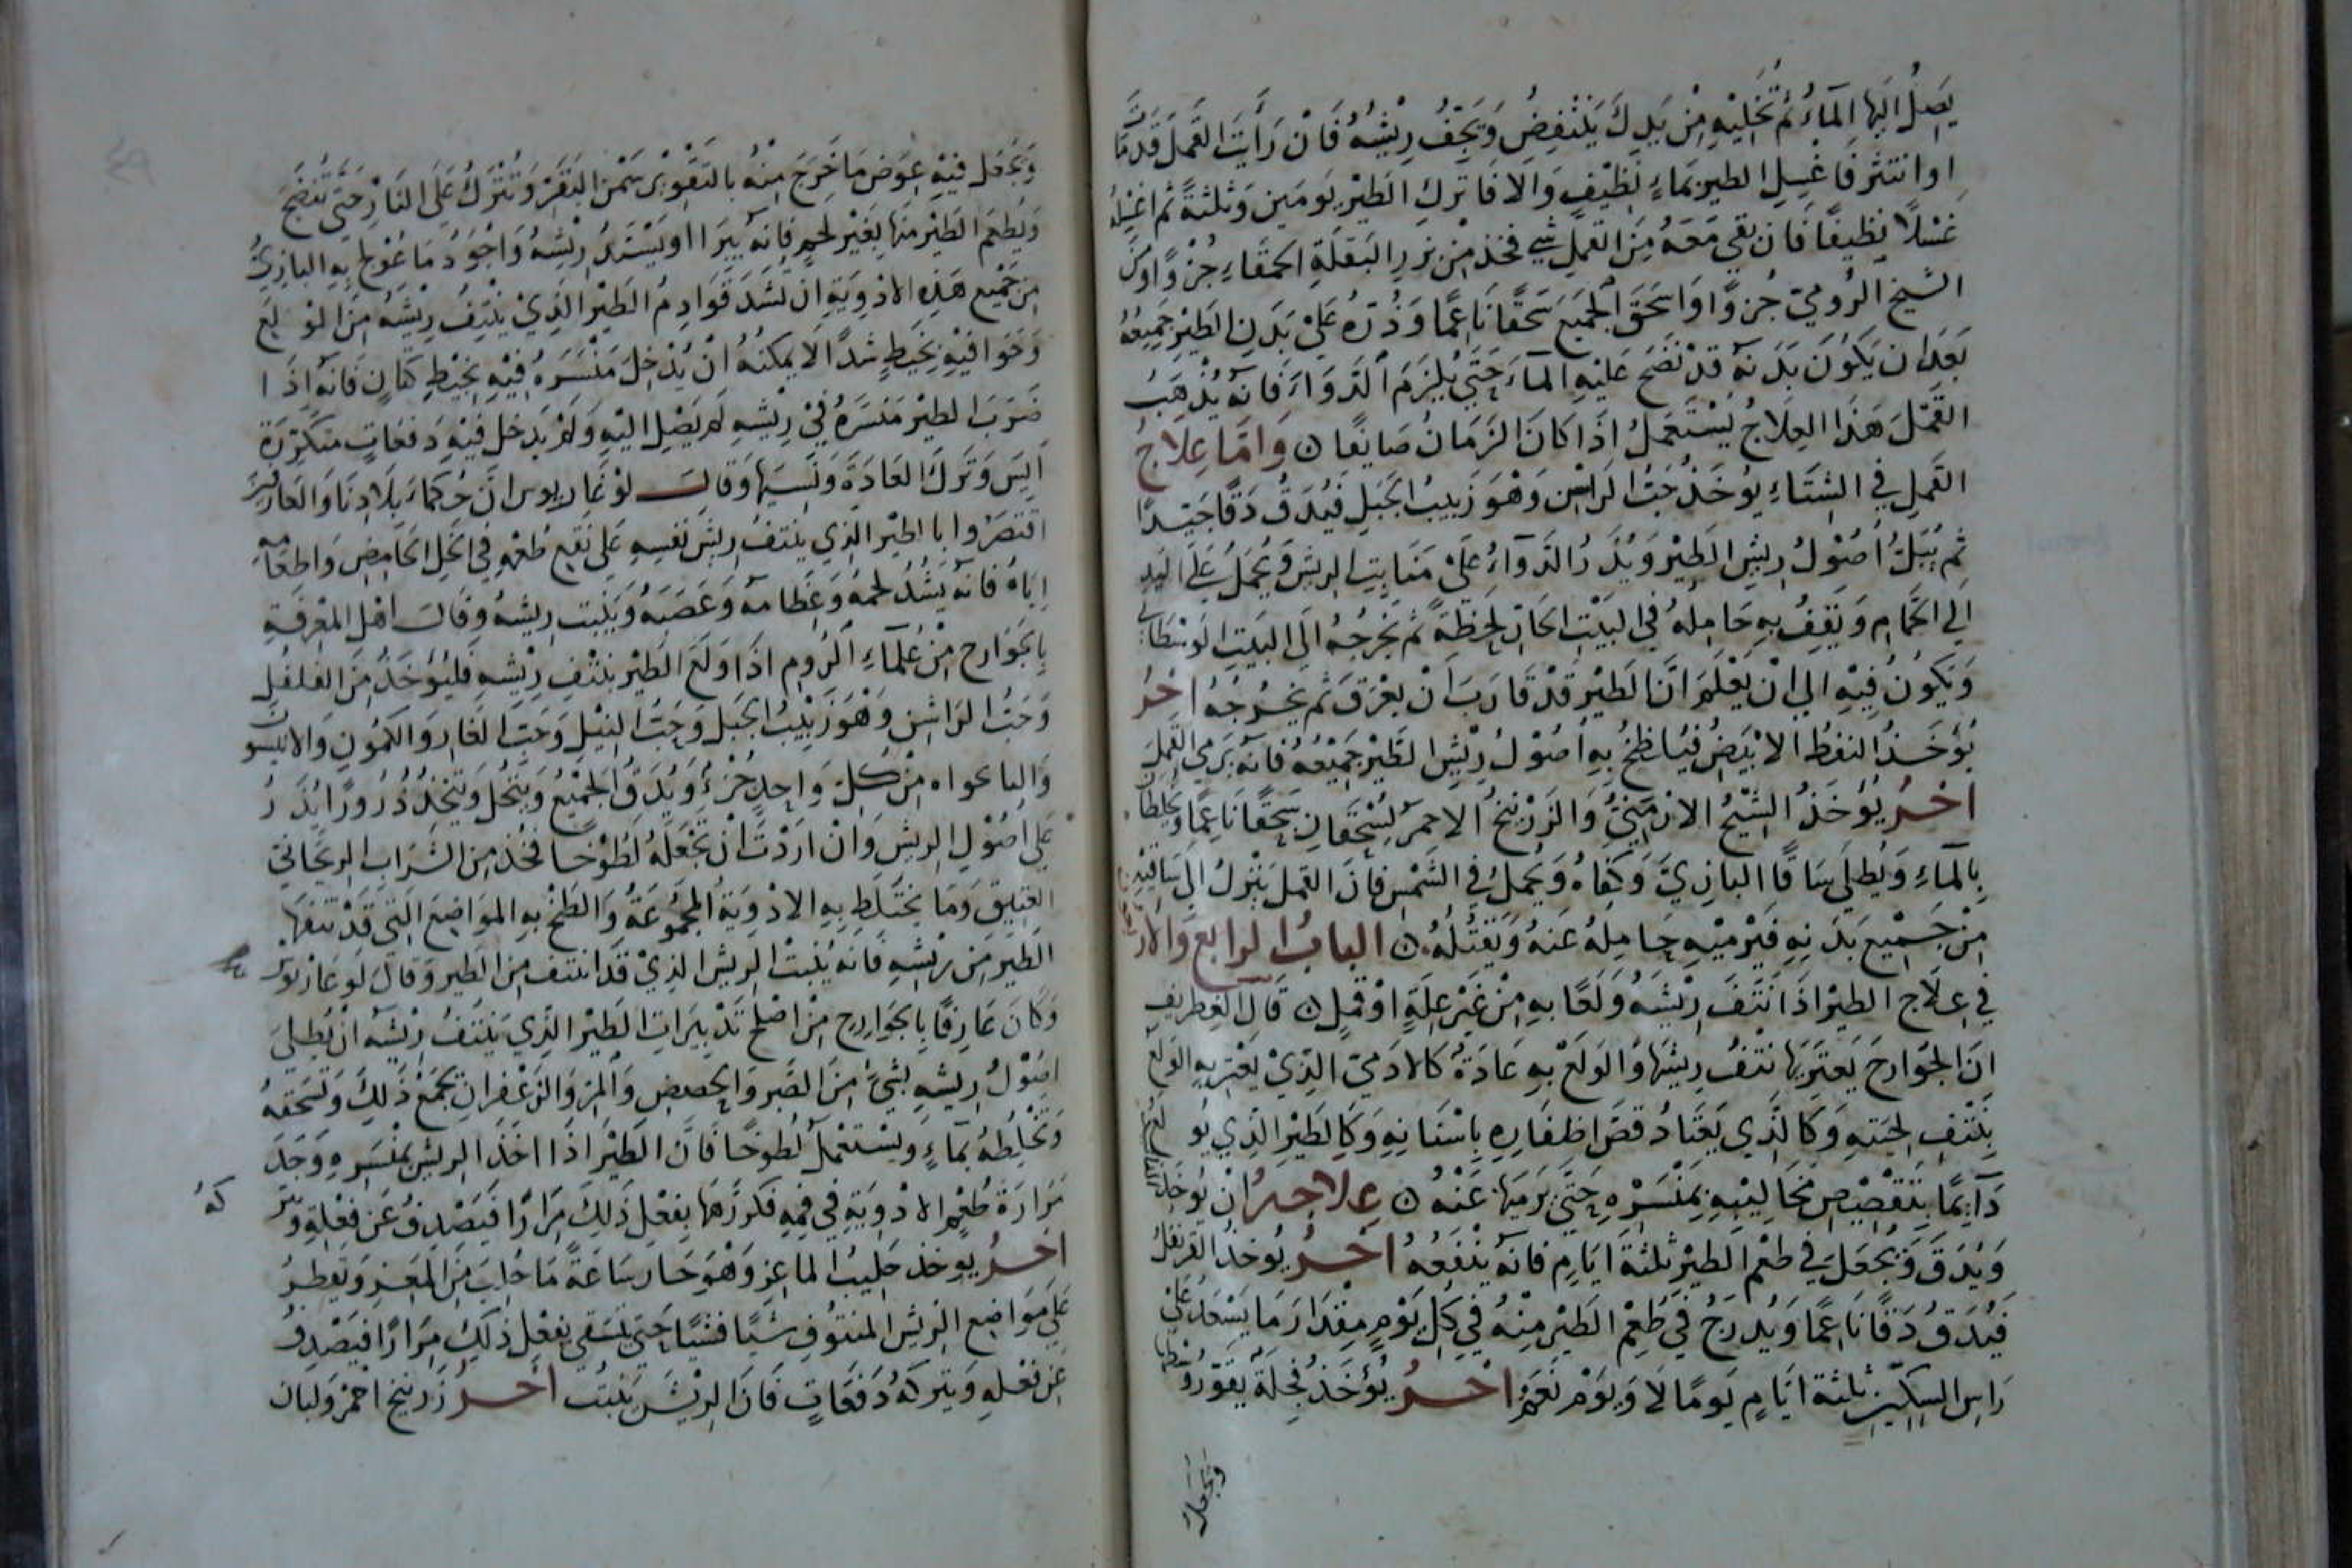 يَصِلُ اليَها المآءُ ثُمَّ تُخَلِيْهِ مِنْ يَدِكَ يَنْتَفِضُ وَيَجِفُّ رِيْشُهُ فَانْ رَأيتَ القَملَ قَد مَاتَ
اوانتثرَ فَاغْسِلِ الطيرَ بماءٍ نَظِيْفٍ وَالا فَاتركِ الطَيْرَ يَومَينِ وَثلثةً ثم اغسِلهُ
غَسْلاً نظيفًا فَان بقي مَعَهُ مِنَ القملِ شي فخذ مِنْ بزرِ البَقلَةِ الحَمقَاءِ جُزوًا وَمِنَ
الشيحِ الرُومِيّ جُزوًا وَاسحَقِ الجَميعَ سَحقًا نَاعِمًا وَذُرّهُ عَلَيْ بَدَنِ الطَيْرِ جَمِيْعِهُ
بَعَدان يَكوُنَ بَدَنهُ قَدْ نَضَحَ عَليْهِ المآءَ حَتّي يُلزَمَ الدَوَاءَ فَانهُ يُذْهِبُ
القَمْلَ هَذَا العِلاجُ يُسْتَعْمَلُ اذَا كانَ الزَمَانُ صَايفًا ۞ وَامّا عِلَاجُ
القَملِ في الشِتَاءِ يوُخَذُ حَبُّ الرَاسَن وَهْوَ زَبيبُ الجَبَلِ فَيُدَقُ دَقًّا جَيّدًا
ثم يُبَلُّ اُصُوْلُ رِيشِ الطَيْرِ وَيُذَرُ الدَوآءُ عَلَيْ مَنَابِتِ الريشِ وَيُحمَلُ عَلي اليَدِ
اِلَي الحَمامِ وَيَقِفُ بِهِ حَامِلُهُ في البَيْتِ الحَارِ لَحظَةً ثم يَخرجُهُ الَي البَيتِ الوسْطَاني
وَيَكوُنُ فيْهِ الي انْ يَعْلَمَ انَّ الطَيْرَ قَدْ قَارَبَ انْ يعْرَقَ ثم يخرجُهُ اخرُ
يُؤخَذُ النفطُ الابْيَضُ فيُلطخُ بهِ اُصُوْلُ رِيْشِ الطَيْرِ جَمِيْعُهُ فانهُ يَرمي القَملَ
اخرُ يُؤخَذُ الشِيْحُ الارْمَنيُّ وَالزَرْنيخُ الاحمرُ يُسْحَقانِ سَحقًا نَاعِمًا وَيُخلَطَانِ
بالمآءِ وَيُطلي سَاقَا البَازيّ وَكفاهُ وَيُحملُ في الشَمْسِ فانَ القَملَ يَنْزلُ الي سَاقَيْهِ
مِنْ جَميعِ بَدَنِهِ فَيَرْميْهِ حَامِلهُ عَنهُ وَيَقْتُلُهُ ۞ البابُ الرابع وَالارْبعون
في عِلَاجِ الطيْرِ اذَا نَتَفَ رِيْشَهُ وَلَعًا بهِ مِنْ غَيْرِ عِلَةٍ اوْ قملٍ ۞ قَالَ الغِطريف
انَ الجَوَارحَ يَعتَريهَا نَتْفُ رِيشِهَا وَالوَلَعُ بهِ عَادَةً كَالادَمِيّ الذِيْ يَعْتريهِ الوَلَعُ
بِنَتْفِ لِحْيَتِهِ وَكَالذِي يَعْتَادُ قصَ اظفَارِهِ باسْنَانِهِ وَكَالطَيْرِ الذِي يُولَعُ
دَآيمًا بتَقْصِيْصِ مَخَالِيْبِهِ بمِنْسَرْهِ حَتَي يَرميَهَا عَنْهُ ۞ عِلاجهُ ان يُوخَذَ
وَيُدَقَ وَيُجعَلَ في طعْمِ الطَيْرِ ثلثةَ ايّامٍ فانهُ يَنْفَعُهُ اخرُ يُوخَذُ القَرنفلُ
فَيُدَقُ دَقًّا نَاعِمًا وَيُدرَجُ فيْ طُعْمِ الطَيْرِ مِنْهُ في كلِ يَوْمٍ مِقْدَارَ مَا يَسْعَلي
رَاسِ السِكِيْنِ ثلثةَ ايّامٍ يَومًا لَا وَيَوْم نَعَمْ اخرُ يُؤخَذُ فجلَةٌ يقوّرُ
وَيُجعَل
وَيُجْعَل فيْهِ عِوَضَ مَا خَرجَ مِنْهُ بالتَقْوِيرِ سَمْنَ البَقَرْ وَتُتْرَكُ عَلَي النَارِ حَتّي تنْضِجَ
وَيُطعَم الطَيْرُ مِنْهَا بِغَيْرِ لحمٍ فَانهُ يَبرَا اويَسْتَدُ رِيْشهُ وَاجْوَدُ مَا عُوْلجَ بِهِ البازِيُّ
مِن جَميعِ هَذِهِ الادْوِيَةِ ان تشَدَ قَوادِمُ الطَيْرِ الذِيْ يَنْتِفُ رِيْشَهُ مِنَ الوَلَعِ
وَخَوَافيْهِ بخَيطٍ شَدًّا لَا يمكنهُ انْ يُدْخِلَ مَنْسَرَهُ فيْهِ بخَيْطِ كتانٍ فانهُ اذَا
ضَرَبَ الطَيْرُ مَنسَرَهُ فيْ رِيْشهِ لم يَصِل اليْهِ وَلم يَدخل فيْهِ دَفعَاتٍ متكرّرَة
اَيِسَ وَتَركَ العَادَةَ وَنَسيَها وَقالَ لوْغَاريوس انَّ حُكماءَ بِلَادِنَا وَالعَارفين
اقتصَرُوا باالطيْرِ الذِي يَنتفُ رِيشَ نفسِهِ عَلي نَقْعِ طُعْمِهِ في الخلِ الحَامِضِ وَاطعَامِهِ
ايّاهُ فانهُ يَشُدُ لحمَهُ وَعِظامَهُ وَعَصَبَهُ وَيَنْبت ريشهُ وَقَالَ اهْل المعْرفَةِ
بِالجَوَارح مِنْ عُلَمآءِ الرُومِ اذَا وَلَعَ الطَيْرُ بنَتفِ رِيْشهِ فليُؤخَذْ مِنَ الفلفلِ
وَحَبُّ الرَاسَنِ وَهْوَ زَبيْبُ الجَبَل وَحَبُّ النيْلِ وَحَبُ الغَارِ وَالكمُونِ وَالانيسون
وَالناعواه مِنْ كلِ وَاحِدٍ جُزْءٌ وَيُدَقُّ الجَميعُ وَيُنْخَلُ وَيُتَّخَذُ ذُرُورًا يُذَرُ
عَلي اُصُوْلِ الريشِ وَانْ ارَدْتَ انْ تَجْعَلَهُ لَطُوْخًا فخُذْ مِنَ الشَرَابِ الريحَاني
العَتِيقِ وَمَا يخْتَلِط بِهِ الادْوِيَةُ المجمُوعَةُ وَالطخْ بِهِ المَواضِعَ التي قَدْ نَتَفهَا
الطَيرُ مِن رِيْشهِ فانهُ يُنْبتُ الرِيشَ الذِيْ قَدِ انتتفَ مِنَ الطَيرِ وَقَالَ لوغَاريوس
وَكانَ عَارِفًا بالجوَارحِ مِنْ اصْلَحِ تَدْبيرَاتِ الطَيْرِ الذِي يَنْتفُ رِيْشَهُ انْ يُطليَ
اصُوْلُ رِيشِهِ بشَيْءٍ مِنَ الصَبرِ وَالحُضضِ وَالمرِ وَالزَعْفرانِ تجمَعُ ذَلِكَ وَتسْحَقهُ
وَتخْلِطهُ بمآءٍ وَيسْتعْملُ لَطوخًا فانَّ الطَيْرَ اذَا اخَذَ الريشَ بمنْسَرِهِ وَجَدَ
مَرَارَةَ طعْمِ الادْوِيَةِ في فمِهِ فكرّرَهَا يفعَل ذَلِكَ مِرَارًا فيَصْدِفُ عَن فعْلهِ وَيَتر
كهُ
اخرُ يوخذ حَليبُ الماعِز وَهْوَ حَارٌ سَاعَةَ مَا حُلِبَ مِنَ المَعْزِ وَيُقطرُ
عَلي مَوَاضِعِ الريشِ المنتوُفِ شيًا فشيًا حتي يَسْتَقي يفعَلُ ذَلِكَ مِرَارًا فيَصْدِفُ
عَن فعْلهِ وَيَتركهُ دَفعَاتٍ فانَ الريْشَ يَنْبُت اخرُ زَرنيخ احمرْ وَلبان